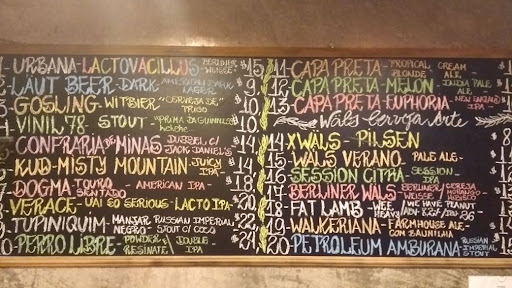 URBANA - LACTOVACILLUS BERLINER WEISSE $15
LAUT BEER DARK AMERICAN DARK LAGER 9
3 GOSLING - WITBIER "CERVEJA DE TRIGO" $10
VINIL 78 - STOUT - "PRIMA DA GUINNESS" hehehe
CONFRARIA DE MINAS DUBBEL C/ JACK DANIEL'S
KUD - MISTY MOUNTAIN JUICY IPA
DOGMA TOURO SENTADO - AMERICAN IPA -
VERACE - UAI SO SERIOUS - LACTO IPA
TUPINIQUIM - MANJAR NEGRO - RUSSIAN IMPERIAL STOUT C/ COCO $24
PERRO LIBRE - POWDER/RESINATE/ DOUBLE IPA $21
11 - CAPA PRETA - TROPICAL BLONDE CREAM ALE
12 CAPA PRETA - MELON - INDIA PALE ALE
13 - CAPA PRETA EUPHORIA - NEW ENGLAND IPA
Wäls Cerveja Arte
14 XWÄLS - PILSEN 8
15 - WÄLS VERANO - PALE ALE -
16 SESSION CITRA - SESSION IPA
17 BERLINER WÄLS BERLINER/CEREJA WEISSE HIBISCO
18 FAT LAMB - WEE HEAVY
19 WALKERIANA - FARMHOUSE ALE COM BAUNILHA
20 PETROLEUM AMBURANA - RUSSIAN IMPERIAL STOUT